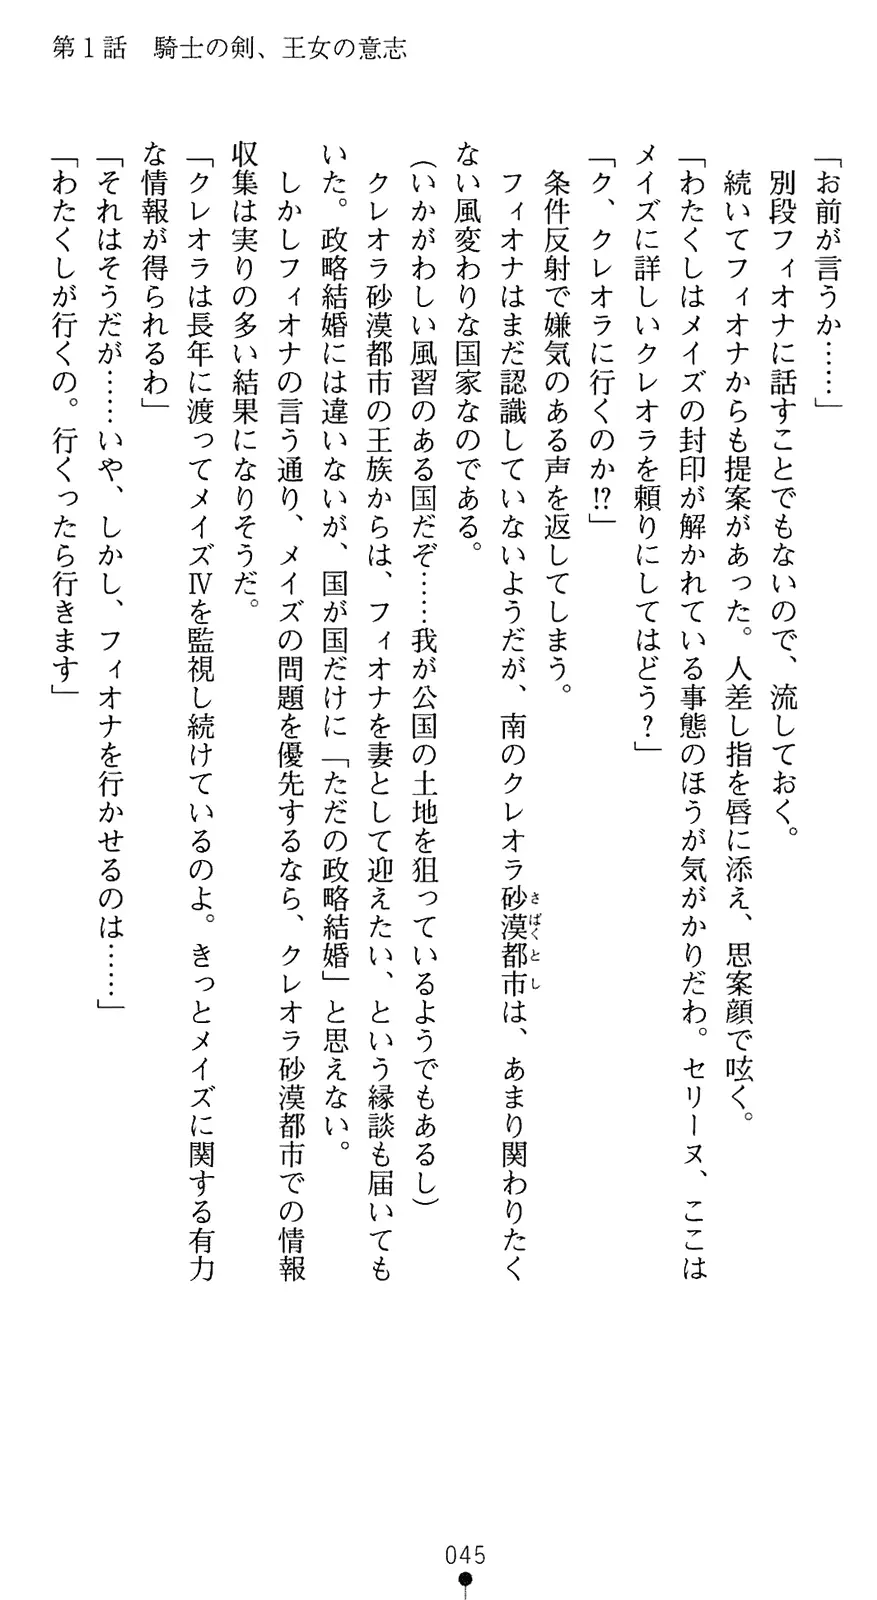 第1話　騎士の剣、王女の意志
「お前が言うか……」
　別段フィオナに話すことでもないので、流しておく。
　続いてフィオナからも提案があった。人差し指を唇に添え、思案顔で呟く。
「わたくしはメイズの封印が解かれている事態のほうが気がかりだわ。セリーヌ、ここは
メイズに詳しいクレオラを頼りにしてはどう？」
「ク、クレオラに行くのか!?」
　条件反射で嫌気のある声を返してしまう。
　フィオナはまだ認識していないようだが、南のクレオラ砂漠都市は、あまり関わりたく
ない風変わりな国家なのである。
（いかがわしい風習のある国だぞ……我が公国の土地を狙っているようでもあるし）
　クレオラ砂漠都市の王族からは、フィオナを妻として迎えたい、という縁談も届いても
いた。政略結婚には違いないが、国が国だけに「ただの政略結婚」と思えない。
　しかしフィオナの言う通り、メイズの問題を優先するなら、クレオラ砂漠都市での情報
収集は実りの多い結果になりそうだ。
「クレオラは長年に渡ってメイズⅣを監視し続けているのよ。きっとメイズに関する有力
な情報が得られるわ」
「それはそうだが……いや、しかし、フィオナを行かせるのは……」
「わたくしが行くの。行くったら行きます」
さばくとし
045